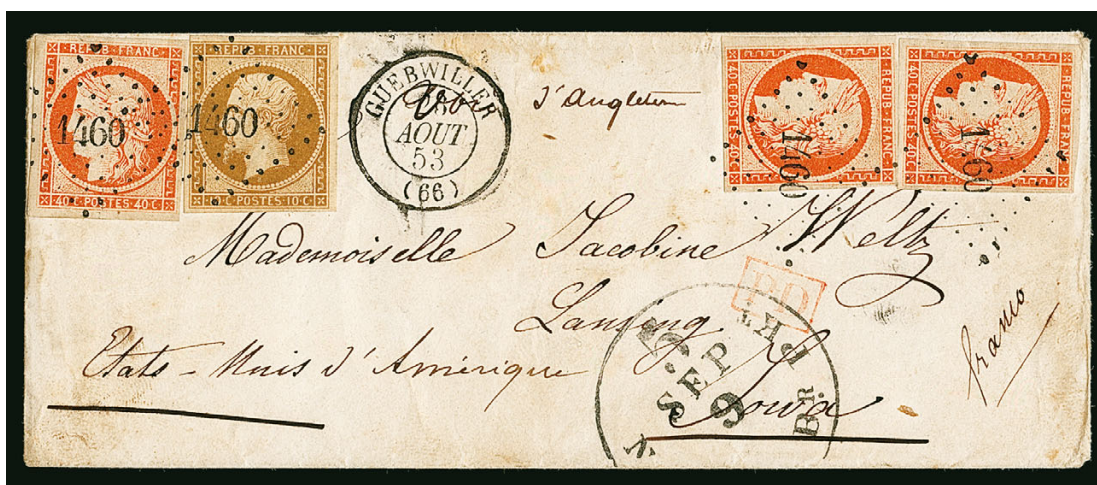 REPUB FRANC
1460
40 C POSTES 40 C
REPUB FRANC
1460
C POSTES 10 C
GUEBWILLER
AOUT
53
(66)
d'Angleterre
REPUB FRANC
1460
40 C POSTES 40 C
REPUB FRANC
1460
40 C POSTES 40 C
Mademoiselle Jacobine Weltz
PD
Lansing
Etats-Unis d'Amérique
Iowa
franco
BR. PKT
SEP
9